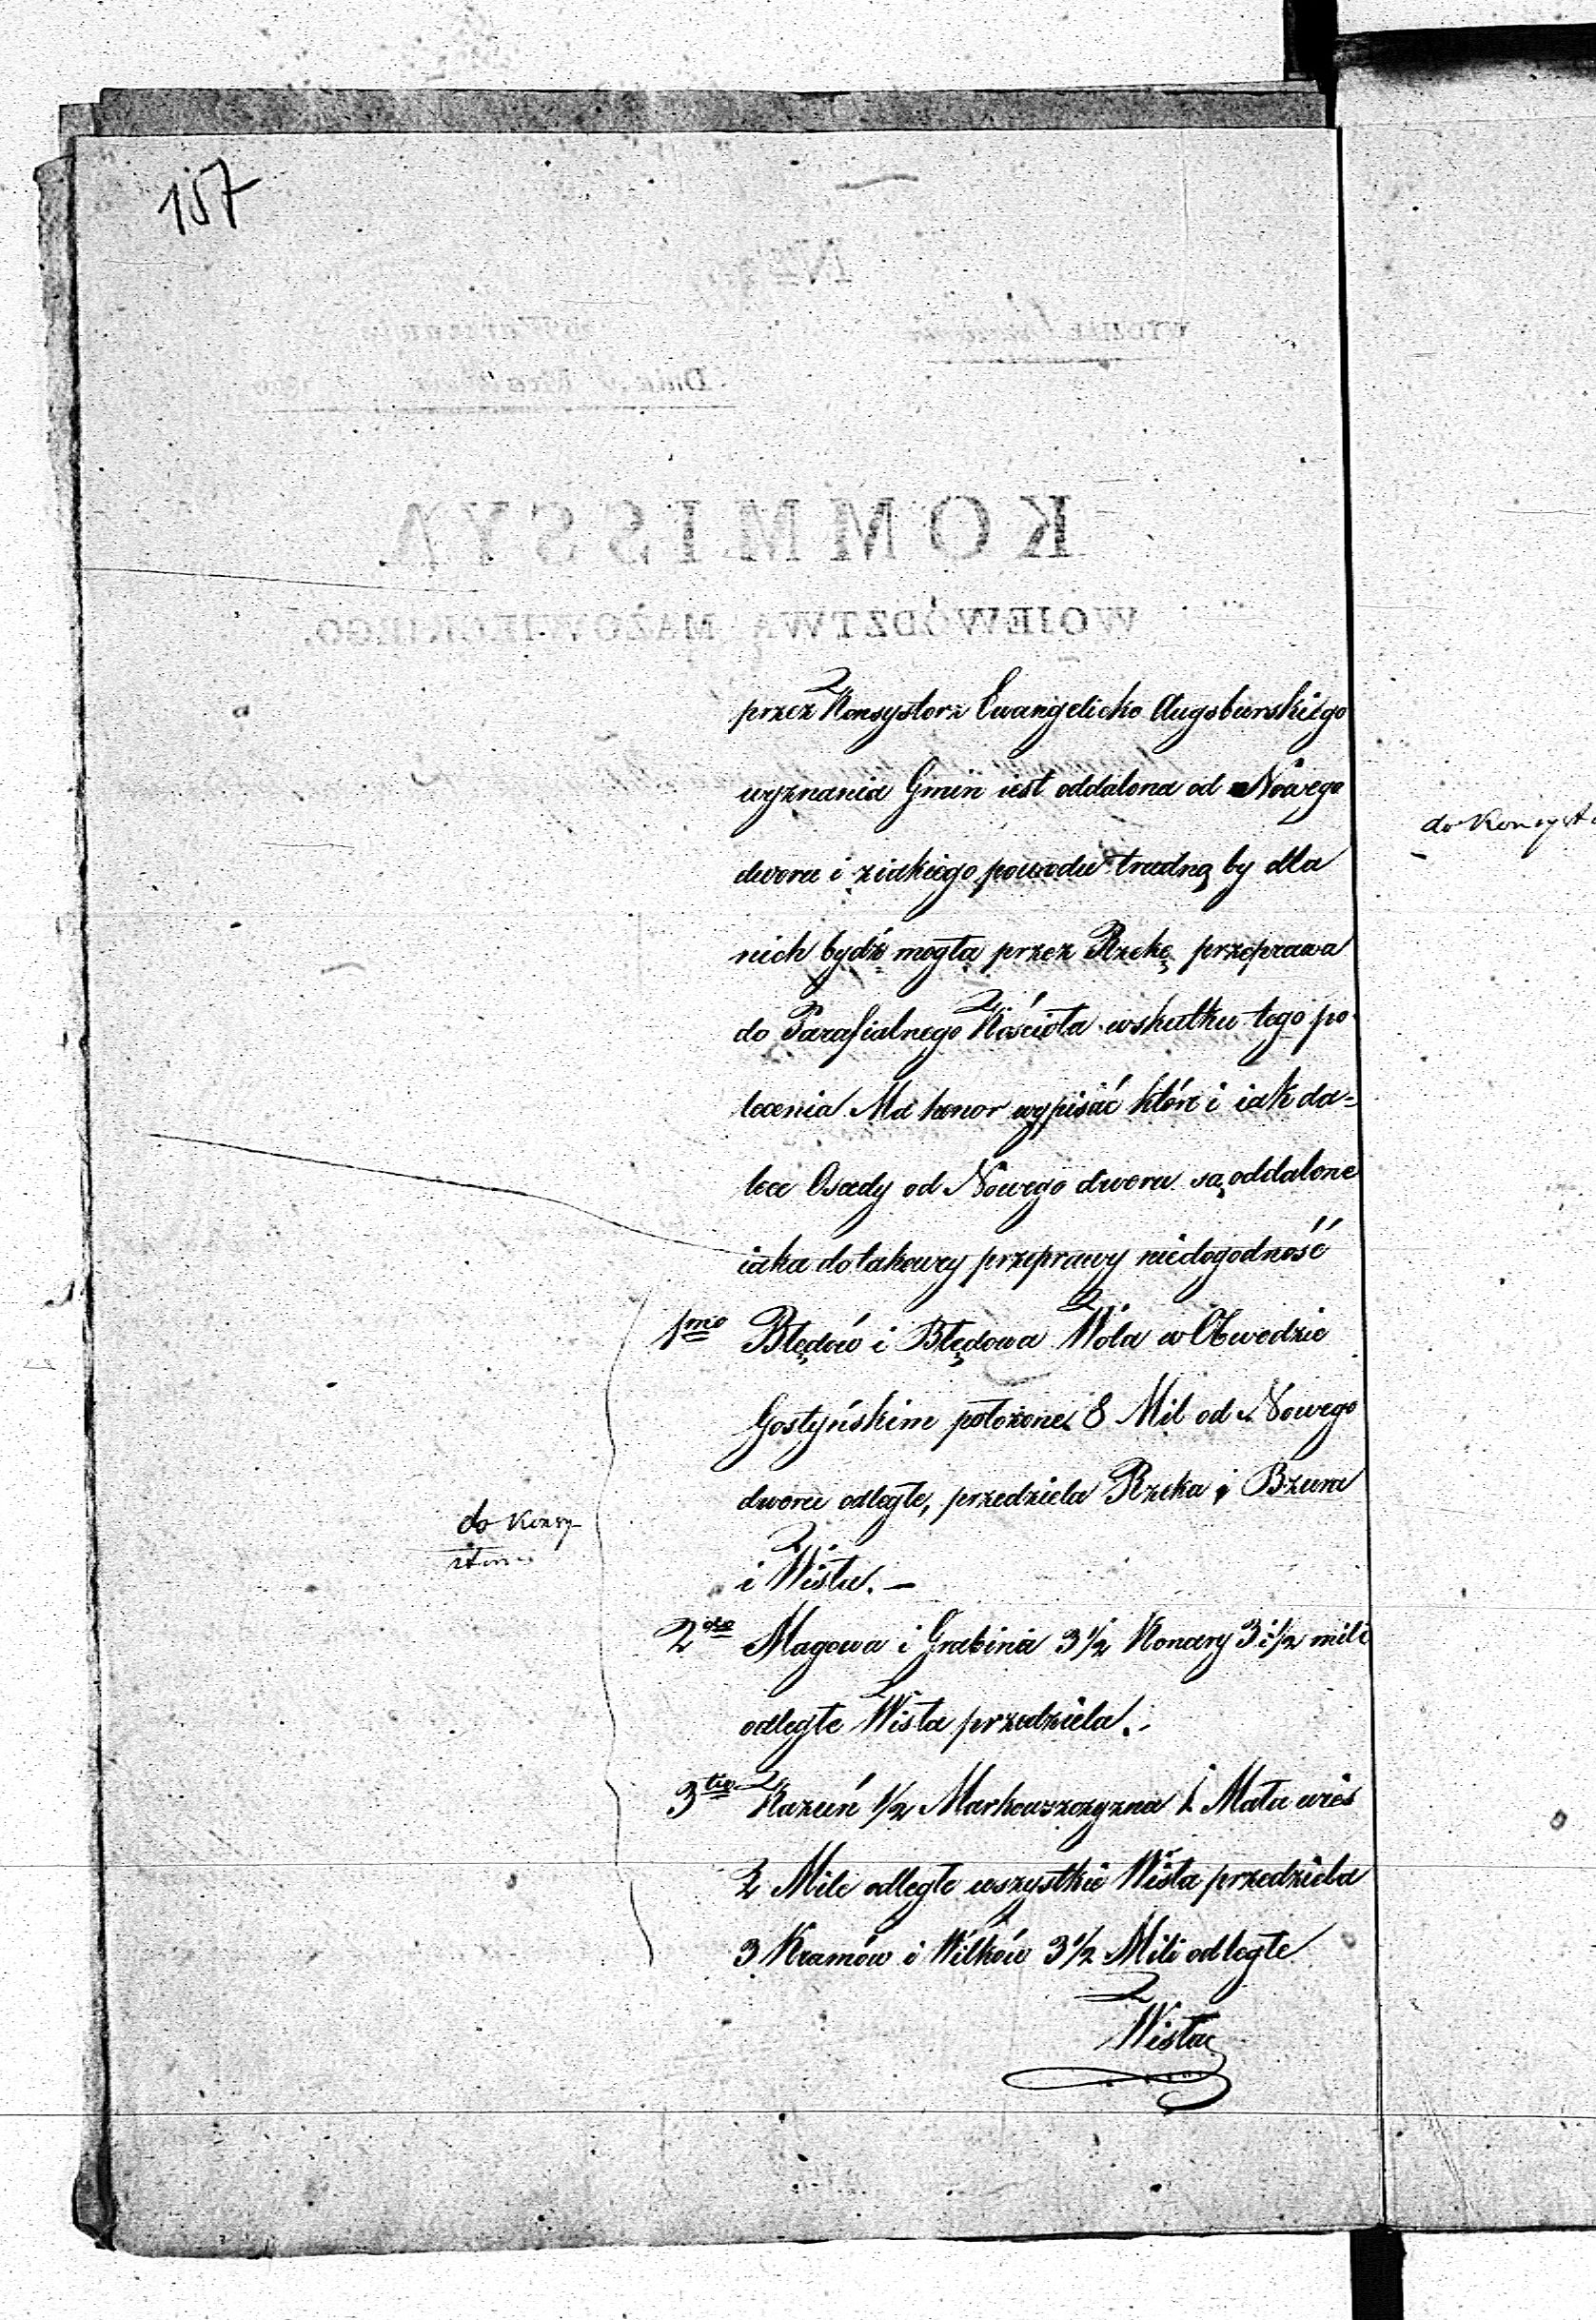 157
przez Konsystorz Ewangelicko Augsburskiego
wyznania Gmin iest oddalona od Nowego
dworu i ziakiego powodu trudną by dla
nich bydź mogła przez Rzekę przeprawa
do Parafialnego Kościoła wskutku tego po-
lecenia Ma honor wypisać które i iak da=
lece Osady od Nowego dworu są oddalone
iaka do takowey przeprawy niedogodność
1mo Błędów i Błędowa Wola w Obwodzie
Gostyńskim położone 8 Mil od Nowego
dworu odległe, przedziela Rzeka i Bzura
i Wisła. —
do Konsy-
2do Magowa i Grabina 3 1/2 Konary 3 i 1/2 mili
odległe Wisła przedziela.
3tio Kazuń 1/2 Markowszczyzna 1 Mała wieś
2 Mile odległe wszystkie Wisła przedziela
3 Kramów i Wilków 3 1/2 Mili odległe
Wisła
do Konsyst
KOMMISSYA
WOJEWÓDZTWA MAZOWIECKIEGO.